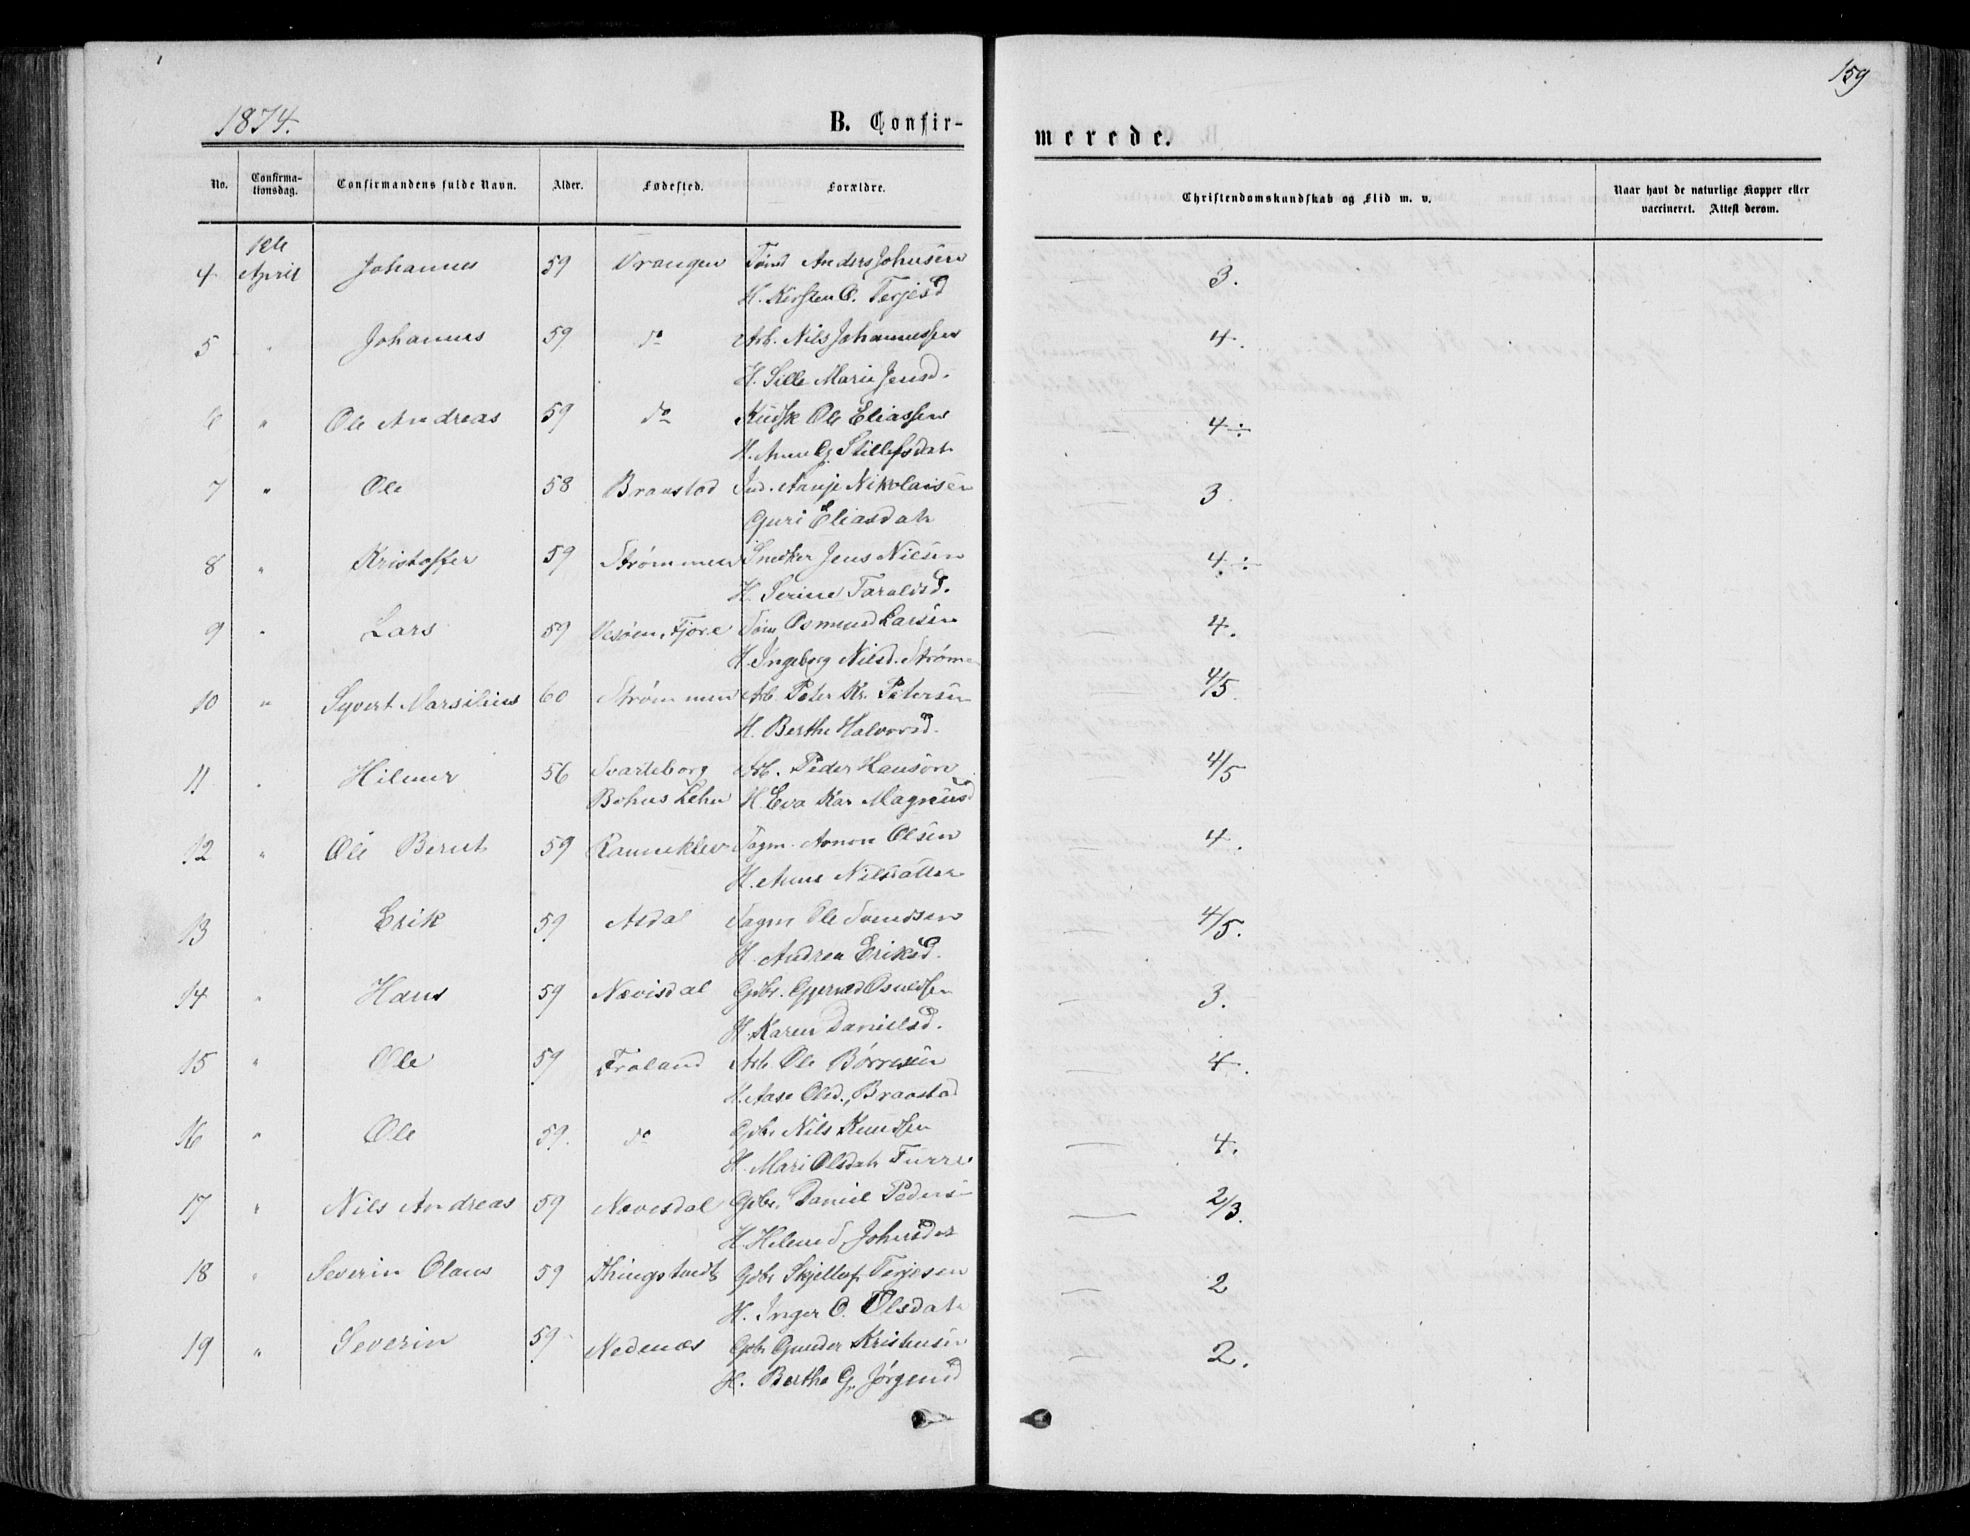 159
1874.
B. Confir-
merede.
No.
Confirma-
tionsdag.
Confirmandens fulde Navn.
Alder.
Fødested.
Forældre.
Christendomskundskab og Flid m. v.
Naar havt de naturlige Kopper eller
vaccineret. Attest derom.
12te
4 April Johannes 59 Vrangen Tømd Anders Johnsen 3.
H. Kirsten O. Terjesd
5 " Johannes 59 do Arb. Nils Johannessen 4.
H. Sille Marie Jensd.
6 " Ole Andreas 59 do Kudsk Ole Eliassen 4÷
H. Anne G. Stillefsdatr
7 " Ole 58 Braastad Ind. Aanje Nikolaisen 3.
Guri Eliasdatr
8 " Kristoffer 59 Strømmen Snedker Jens Nilsen 4÷
H. Serine Taraldsd.
9 " Lars 59 Vesøen, Fjore Tøm. Osmund Larsen 4.
H. Ingeborg Nilsd. Strøm
10 " Syvert Marsilius 60 Strømmen Arb. Peter Kr. Petersen 4/5.
H. Berthe Halvorsd.
11 " Hilmer 56 Svarteborg Arb. Peder Hanson 4/5
Bohus Lehn H. Eva Kar Magnusd
12 " Ole Bernt 59 Ranneklev Sagm. Aanon Olsen 4.
H. Anne Nilsdatter
13 Erik 59 Asdal Sagm Ole Svendsen 4/5.
H. Andrea Eriksd.
14 " Hans 59 Nævisdal Gdbr. Gjerud Osuldsen 3.
H. Karen Danielsd.
15 " Ole 59 Froland Arb. Ole Børresen 4.
H. Aase Olsd., Braastad
16 " Ole 59. do Gdbr Nils Knudsen 4.
H. Mari Olsdatr Furre
17 " Nils Andreas 59 Nævesdal Gdbr. Daniel Peders- 2/3.
H. Helene S. Johnsdtr
18 " Severin Olaus 59 Thingstvedt Gdbr Skjellof Terjesen 2
H. Inger O. Olsdatr
19 " Severin 59 Nedenæs Gdbr Gunder Kristensen 2.
H. Berthe G. Jørgensd